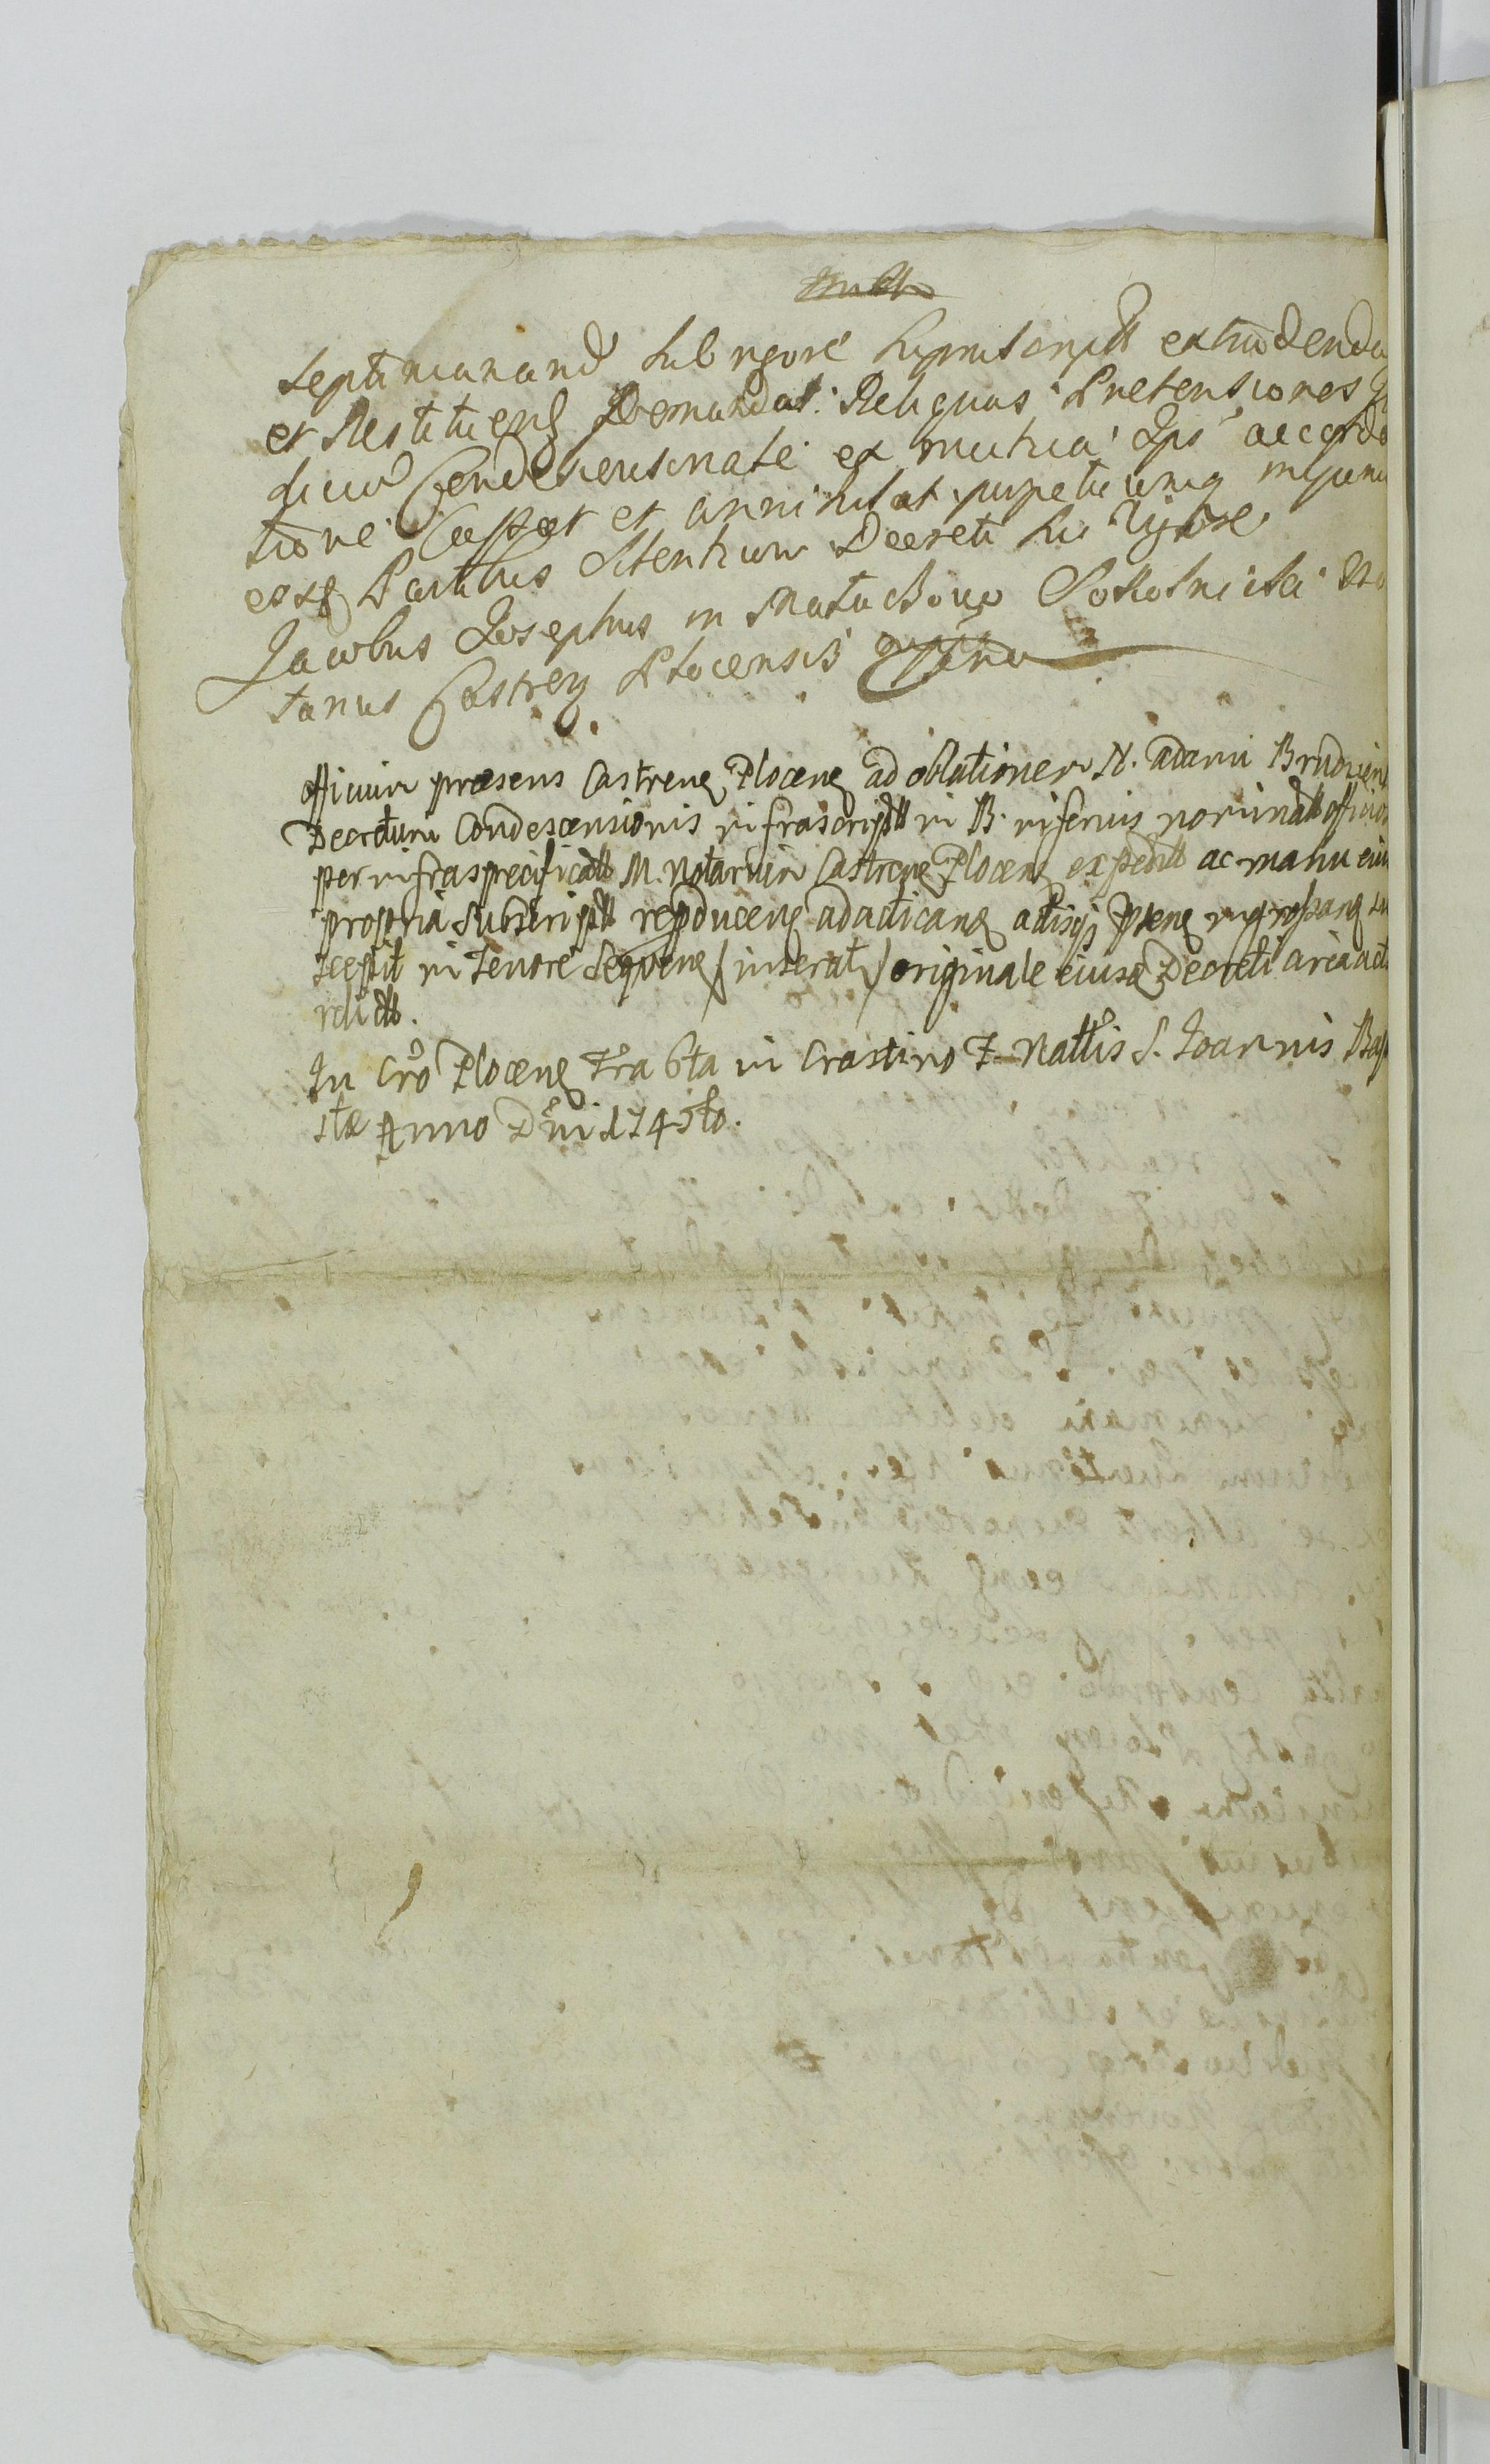 septimanand sub rigore suprascriptt extradenda
et Restituend Demandat. Reliquas Pretensiones
dicium Condescensionale ex mutua Ips accorda
tione Cassat et annihilat, perpetuumq injunc
esse Partibus Silentium Decreti sui vigore
Jacobus Josephus in Matachowo Sokolnicki No
tarius Castren Plocensis mpp
officium præsens Castrens Plocens ad oblationem N. Adami Brudzins
Decretum Condescensionis infrascriptt in B. inferius nominatt officios
per infraspecificatt M. Notarium Castrens Plocens expeditt ac manu eius
propria subscriptt reproducens ad acticans actisqz psens ingrossans su
scepit in Tenore sequens (inserat) originale eiusd Decreti circa acta
relictt.
In Cro Plocens Fra 6ta in Crastino F. Nattis S. Joannis Bap
stæ Anno Dni 1745to.